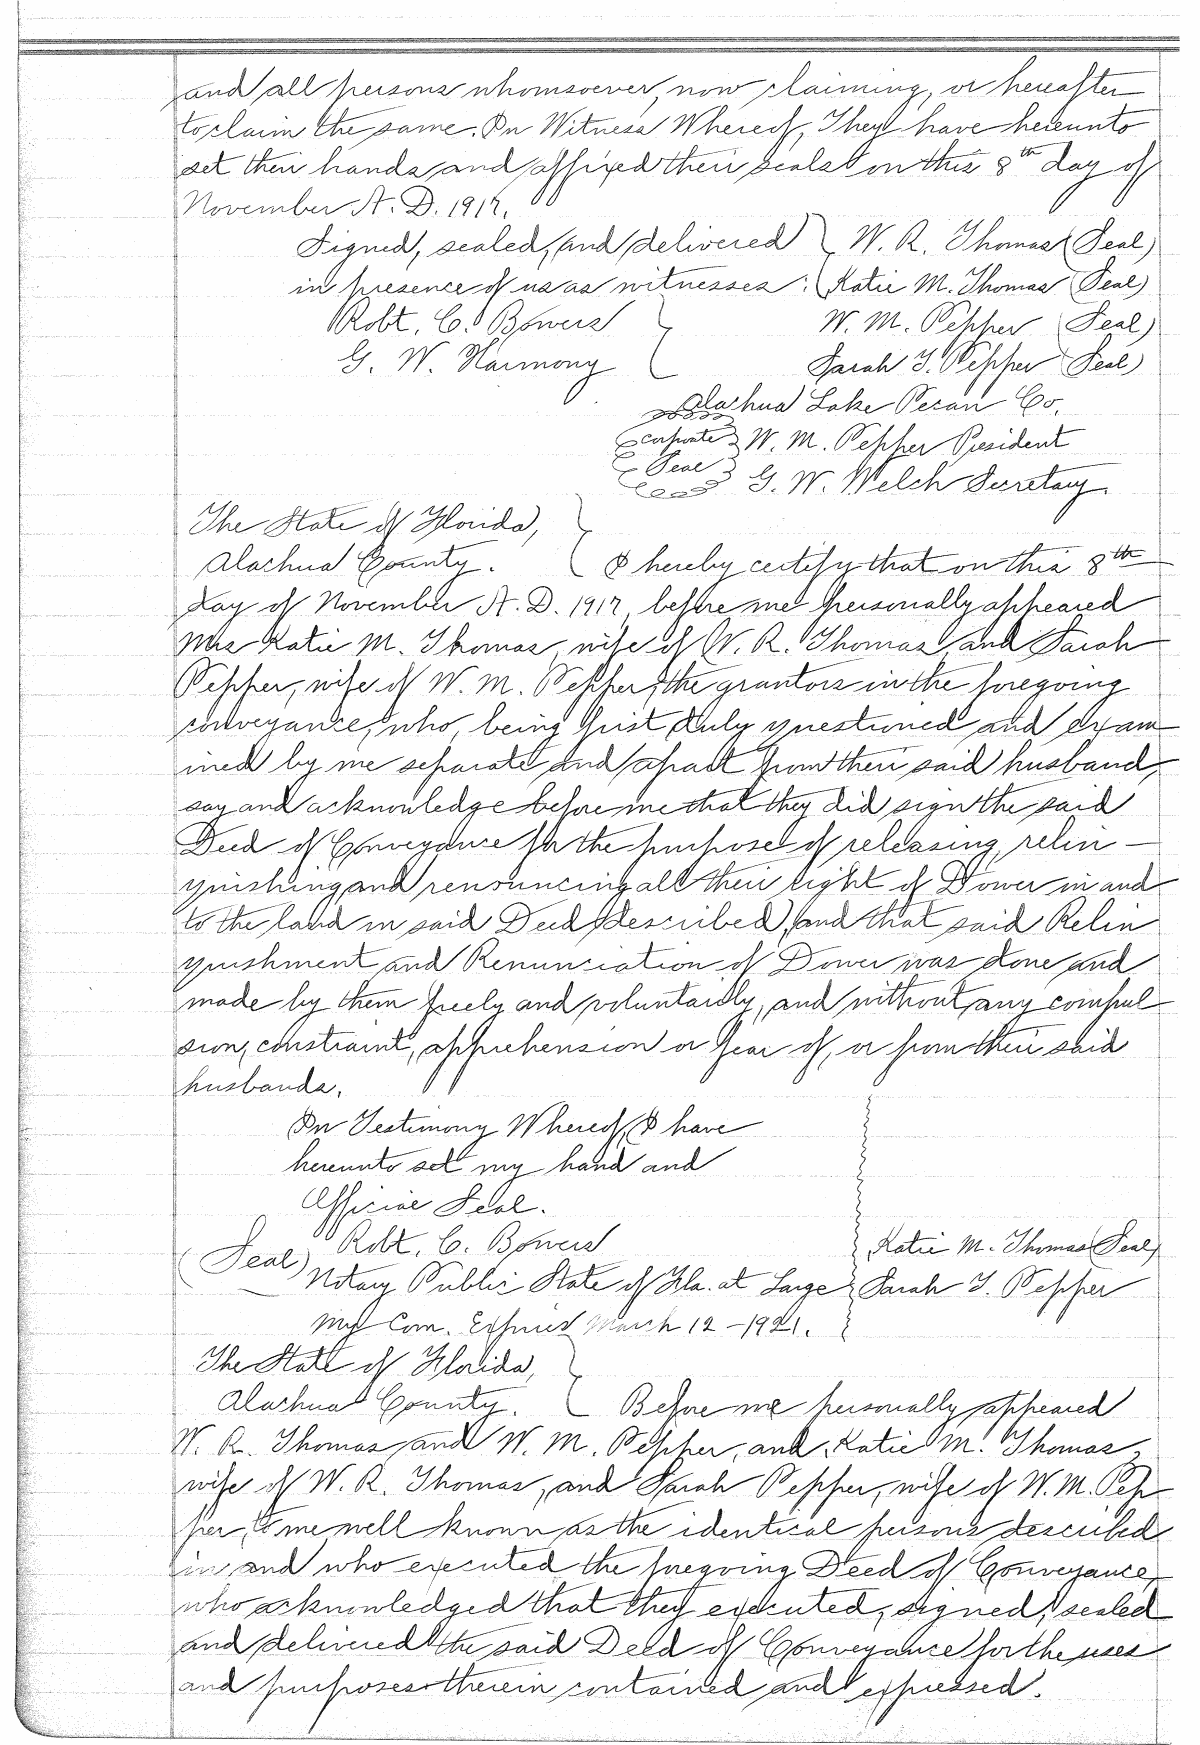 and all persons whomsoever, now claiming, or hereafter
to claim the same. In Witness Whereof, They have hereunto
set their hands and affixed their seals on this 8th day of
November A. D. 1917.
Signed, sealed, and delivered W. R. Thomas (Seal)
in presence of us as witnesses: Katie M. Thomas (Seal)
Robt. C. Bowers W. M. Pepper (Seal)
G. W. Harmony Sarah T. Pepper (Seal)
Alachua Lake Pecan Co.
corporate W. M. Pepper President
Seal G. W. Welch Secretary.
The State of Florida,
Alachua County. I hereby certify that on this 8th
day of November A. D. 1917, before me personally appeared
Mrs Katie M. Thomas, wife of W. R. Thomas, and Sarah
Pepper, wife of W. M. Pepper, the grantors in the foregoing
conveyance, who, being first duly questioned and exam
ined by me separate and apart from their said husband,
say and acknowledge before me that they did sign the said
Deed of Conveyance for the purpose of releasing, relin-
quishing and renouncing all their right of Dower in and
to the land in said Deed described, and that said Relin
quishment and Renunciation of Dower was done and
made by them freely and voluntarily, and without any compul
sion, constraint, apprehension or fear of, or from their said
husbands.
In Testimony Whereof, I have
hereunto set my hand and
Official Seal.
(Seal) Robt. C. Bowers Katie M. Thomas (Seal)
Notary Public State of Fla. at Large Sarah T. Pepper
My Com. Expires March 12 - 1921.
The State of Florida,
Alachua County. Before me personally appeared
W. R. Thomas and W. M. Pepper, and Katie M. Thomas,
wife of W. R. Thomas, and Sarah Pepper, wife of W. M. Pep
per, to me well known as the identical persons described
in and who executed the foregoing Deed of Conveyance,
who acknowledged that they executed, signed, sealed
and delivered the said Deed of Conveyance for the uses
and purposes therein contained and expressed.